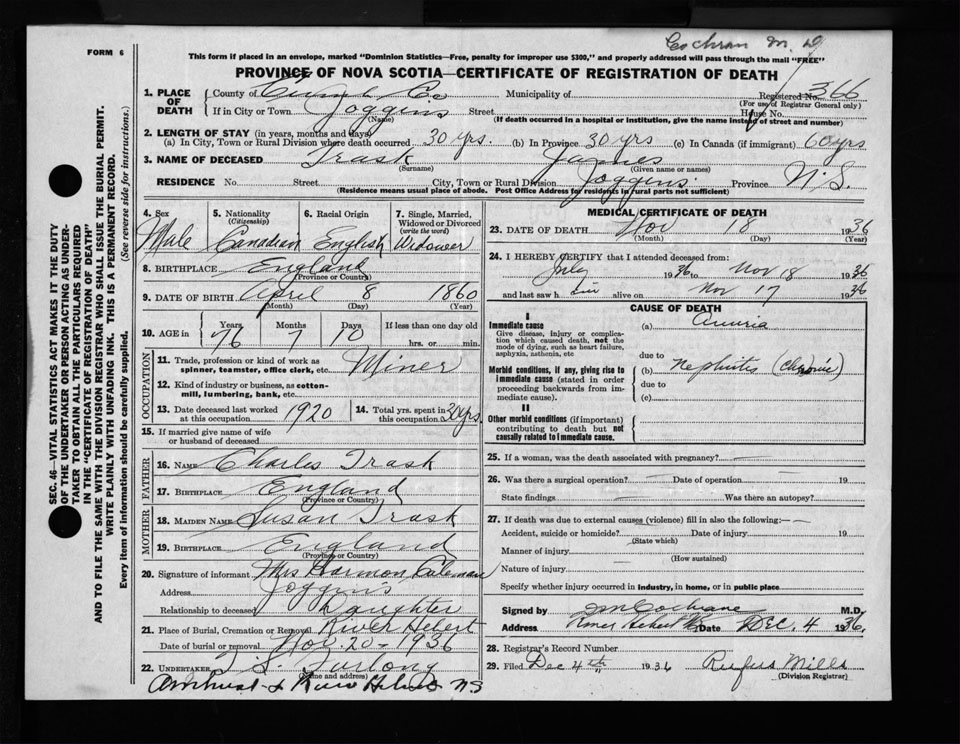 Cochran M.D
FORM 6
This form if placed in an envelope, marked "Dominion Statistics—Free, penalty for improper use $300," and properly addressed will pass through the mail "FREE"
PROVINCE OF NOVA SCOTIA—CERTIFICATE OF REGISTRATION OF DEATH
1. PLACE OF DEATH
County of Cumb Co Municipality of Registered No. 366
(For use of Registrar General only)
If in City or Town Joggins Street House No.
(Name) (If death occurred in a hospital or institution, give the name instead of street and number)
2. LENGTH OF STAY (in years, months and days)
(a) In City, Town or Rural Division where death occurred 30 yrs. (b) In Province 30 yrs (c) In Canada (if immigrant) 60 yrs
3. NAME OF DECEASED Trask James
(Surname) (Given name or names)
RESIDENCE No. Street City, Town or Rural Division Joggins Province N.S.
(Residence means usual place of abode. Post Office Address for residents in rural parts not sufficient)
4. Sex Male
5. Nationality (Citizenship) Canadian
6. Racial Origin English
7. Single, Married, Widowed or Divorced (write the word) Widower
8. BIRTHPLACE England
(Province or Country)
9. DATE OF BIRTH April 8 1860
(Month) (Day) (Year)
10. AGE in Years 76 Months 7 Days 10 If less than one day old hrs. or min.
OCCUPATION
11. Trade, profession or kind of work as spinner, teamster, office clerk, etc. Miner
12. Kind of industry or business, as cotton-mill, lumbering, bank, etc.
13. Date deceased last worked at this occupation 1920
14. Total yrs. spent in this occupation 30 yrs.
15. If married give name of wife or husband of deceased
FATHER
16. NAME Charles Trask
17. BIRTHPLACE England
(Province or Country)
MOTHER
18. MAIDEN NAME Susan Trask
19. BIRTHPLACE England
(Province or Country)
20. Signature of informant Mrs Harmon Coleman
Address Joggins
Relationship to deceased Daughter
21. Place of Burial, Cremation or Removal River Hebert
Date of burial or removal Nov. 20 - 1936
22. UNDERTAKER J S Furlong
(Name and address)
Amherst & River Hebert NS
MEDICAL CERTIFICATE OF DEATH
23. DATE OF DEATH Nov 18 1936
(Month) (Day) (Year)
24. I HEREBY CERTIFY that I attended deceased from:
July 1936 to Nov 18 1936
and last saw him alive on Nov 17 1936
CAUSE OF DEATH
I
Immediate cause
Give disease, injury or complication which caused death, not the mode of dying, such as heart failure, asphyxia, asthenia, etc
(a) Anuria
due to
Morbid conditions, if any, giving rise to immediate cause (stated in order proceeding backwards from immediate cause).
(b) Nephritis (Chronic)
due to
(c)
II
Other morbid conditions (if important) contributing to death but not causally related to immediate cause.
25. If a woman, was the death associated with pregnancy?
26. Was there a surgical operation? Date of operation 19
State findings Was there an autopsy?
27. If death was due to external causes (violence) fill in also the following:
Accident, suicide or homicide? Date of injury 19
(State which)
Manner of injury
(How sustained)
Nature of injury
Specify whether injury occurred in industry, in home, or in public place
Signed by M Cochrane M.D.
Address River Hebert NS Date DEC. 4 1936.
28. Registrar's Record Number
29. Filed Dec 4th 1936 Rufus Mills
(Division Registrar)
SEC. 46—VITAL STATISTICS ACT MAKES IT THE DUTY
OF THE UNDERTAKER OR PERSON ACTING AS UNDER-
TAKER TO OBTAIN ALL THE PARTICULARS REQUIRED
IN THE "CERTIFICATE OF REGISTRATION OF DEATH"
AND TO FILE THE SAME WITH THE DIVISION REGISTRAR WHO SHALL ISSUE THE BURIAL PERMIT.
WRITE PLAINLY WITH UNFADING INK. THIS IS A PERMANENT RECORD.
Every item of information should be carefully supplied. (See reverse side for instructions.)